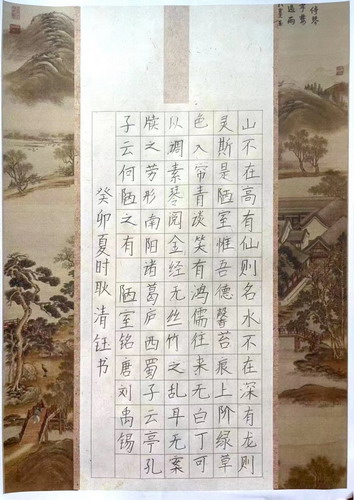 山不在高有仙则名水不在深有龙则
灵斯是陋室惟吾德馨苔痕上阶绿草
色入帘青谈笑有鸿儒往来无白丁可
以调素琴阅金经无丝竹之乱耳无案
牍之劳形南阳诸葛庐西蜀子云亭孔
子云何陋之有 陋室铭唐刘禹锡
癸卯夏时耿清钰书